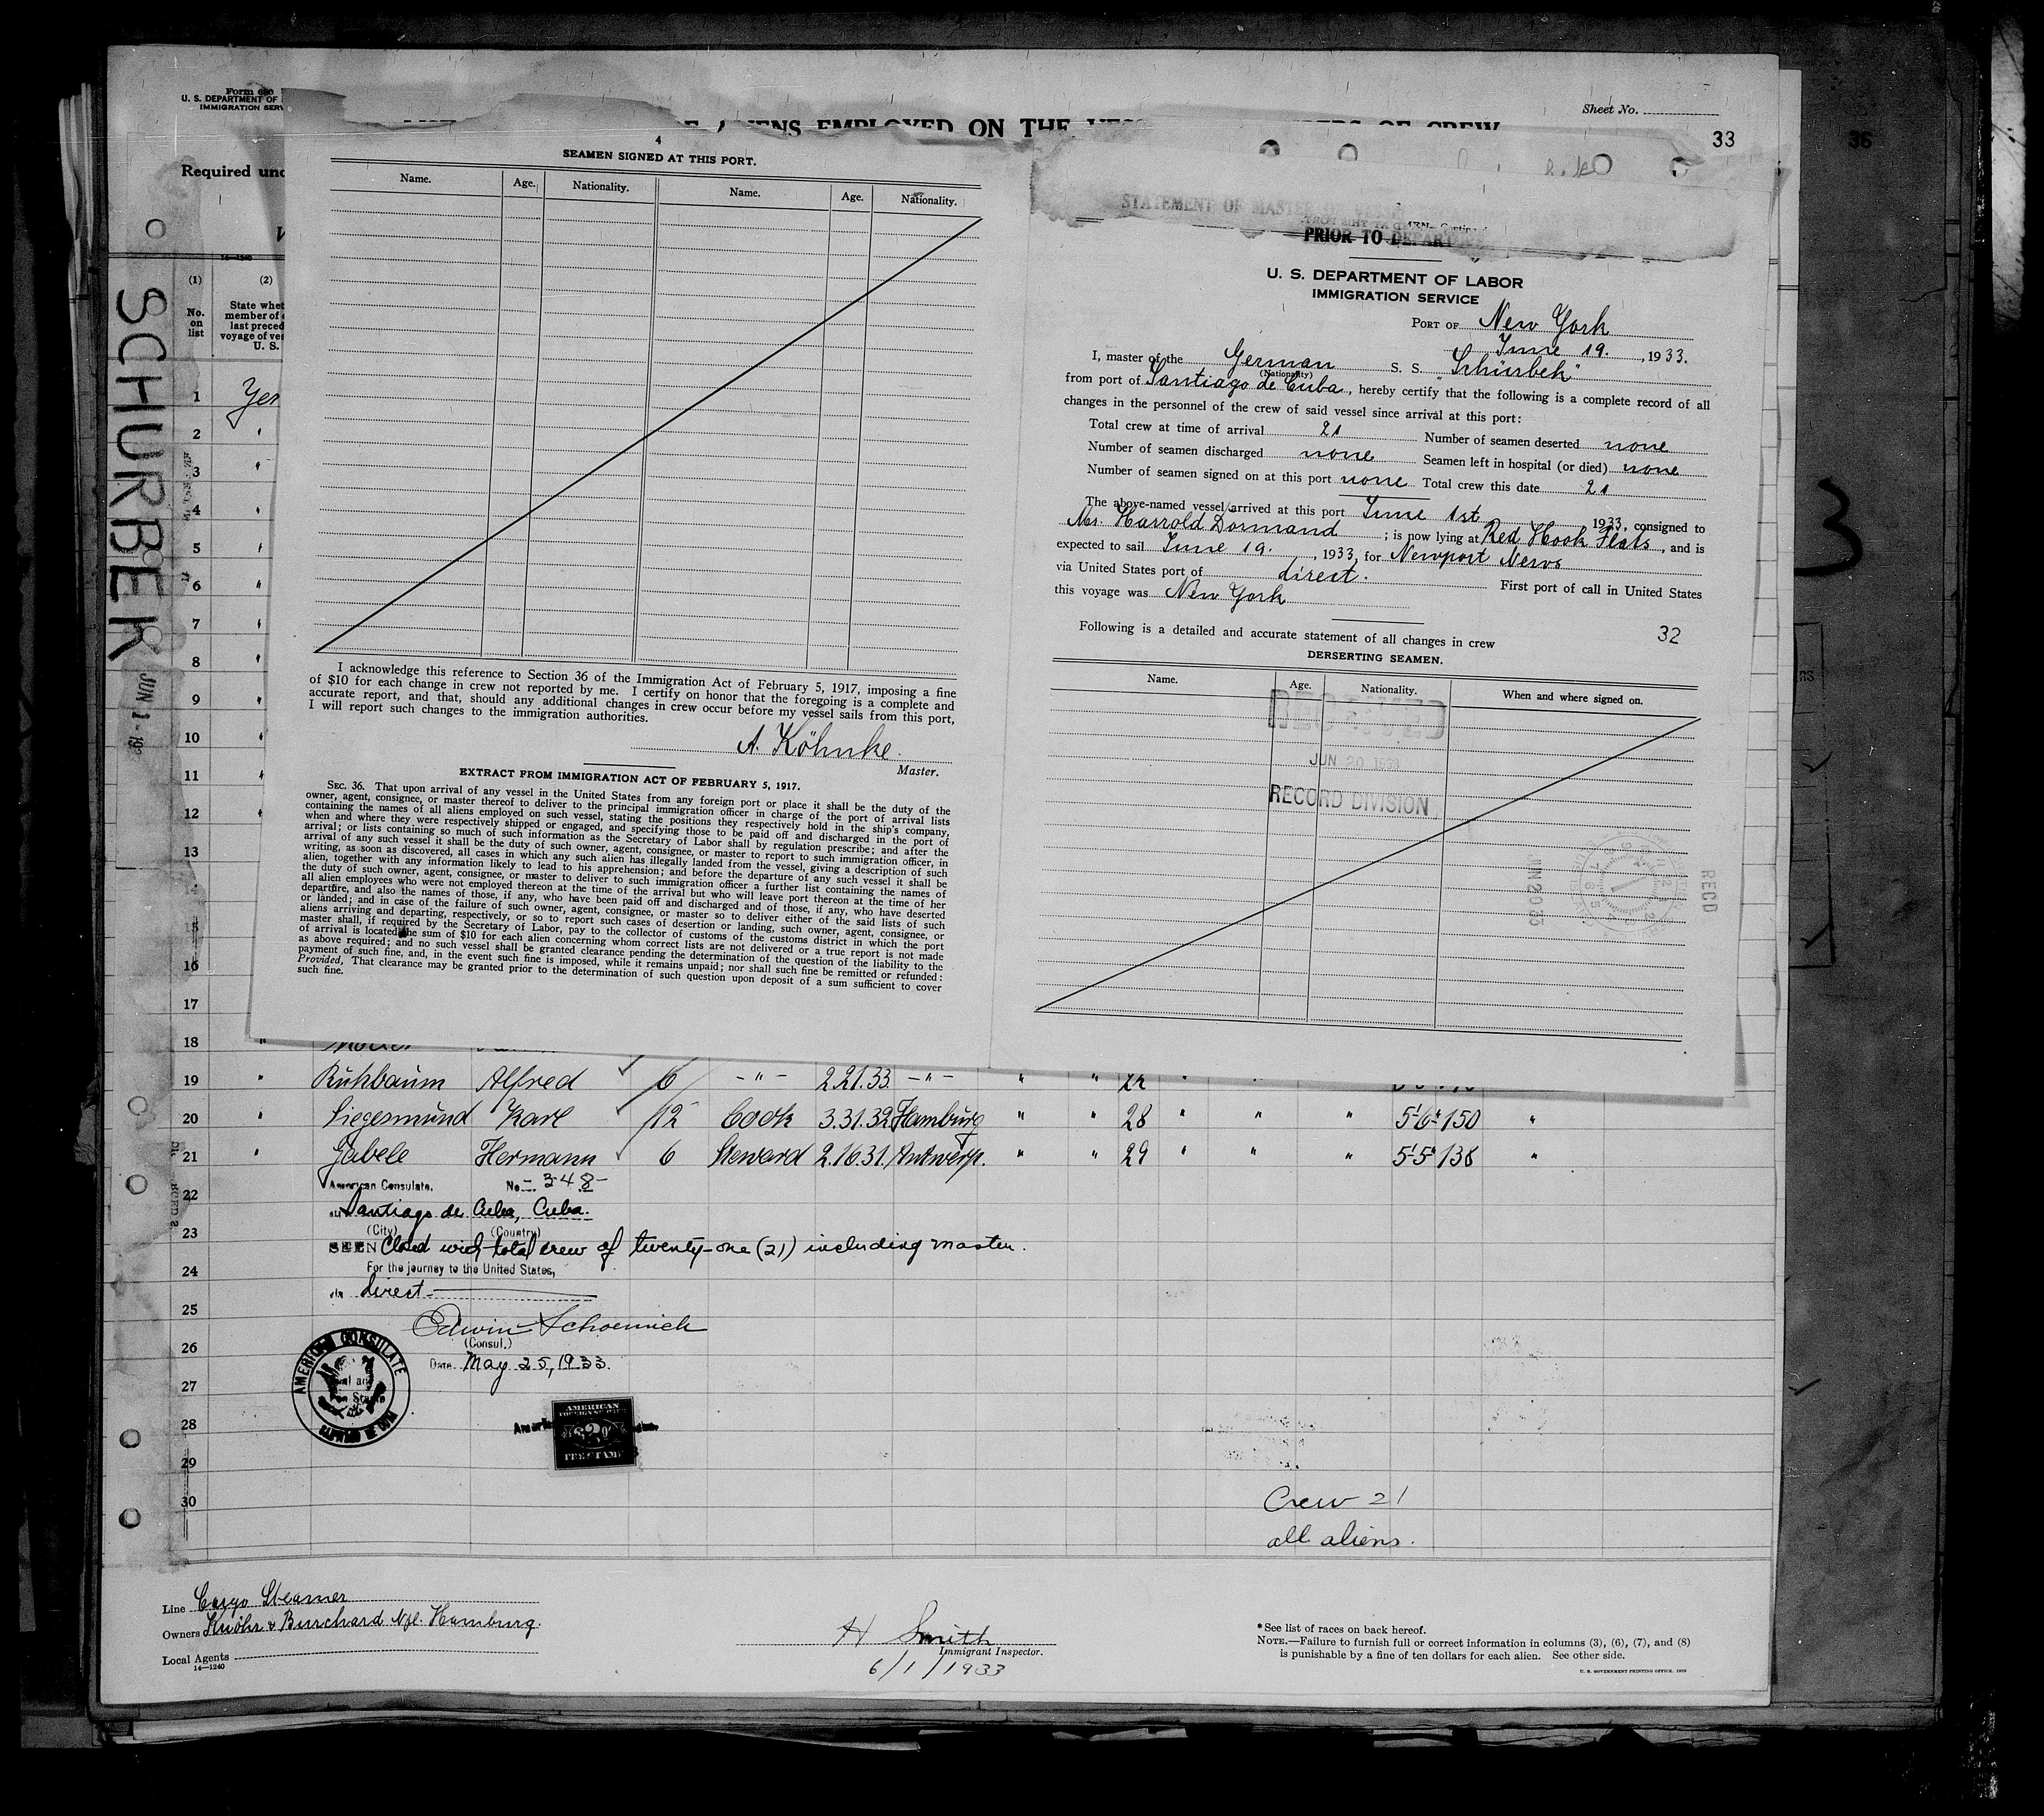 Form 680
U. S. DEPARTMENT OF
IMMIGRATION SERV
Sheet No.
ALIENS EMPLOYED ON THE
OF CREW
33
36
Required und
SCHURBEK
JUN 1 - 193
(1)
(2)
No.
on
list
State whet
member of
last preced
voyage of ves
U. S.
1 Yer
2 "
3 "
4 "
5 "
6 "
7 "
8 "
9 "
10 "
11 "
12 "
13
14
15
16
17
4
SEAMEN SIGNED AT THIS PORT.
Name. Age. Nationality. Name. Age. Nationality.
I acknowledge this reference to Section 36 of the Immigration Act of February 5, 1917, imposing a fine
of $10 for each change in crew not reported by me. I certify on honor that the foregoing is a complete and
accurate report, and that, should any additional changes in crew occur before my vessel sails from this port,
I will report such changes to the immigration authorities.
A. Köhnke.
Master.
EXTRACT FROM IMMIGRATION ACT OF FEBRUARY 5, 1917.
SEC. 36. That upon arrival of any vessel in the United States from any foreign port or place it shall be the duty of the
owner, agent, consignee, or master thereof to deliver to the principal immigration officer in charge of the port of arrival lists
containing the names of all aliens employed on such vessel, stating the positions they respectively hold in the ship's company,
when and where they were respectively shipped or engaged, and specifying those to be paid off and discharged in the port of
arrival; or lists containing so much of such information as the Secretary of Labor shall by regulation prescribe; and after the
arrival of any such vessel it shall be the duty of such owner, agent, consignee, or master to report to such immigration officer, in
writing, as soon as discovered, all cases in which any such alien has illegally landed from the vessel, giving a description of such
alien, together with any information likely to lead to his apprehension; and before the departure of any such vessel it shall be
the duty of such owner, agent, consignee, or master to deliver to such immigration officer a further list containing the names of
all alien employees who were not employed thereon at the time of the arrival but who will leave port thereon at the time of her
departure, and also the names of those, if any, who have been paid off and discharged and of those, if any, who have deserted
or landed; and in case of the failure of such owner, agent, consignee, or master so to deliver either of the said lists of such
aliens arriving and departing, respectively, or so to report such cases of desertion or landing, such owner, agent, consignee, or
master shall, if required by the Secretary of Labor, pay to the collector of customs of the customs district in which the port
of arrival is located the sum of $10 for each alien concerning whom correct lists are not delivered or a true report is not made
as above required; and no such vessel shall be granted clearance pending the determination of the question of the liability to the
payment of such fine, and, in the event such fine is imposed, while it remains unpaid; nor shall such fine be remitted or refunded:
Provided, That clearance may be granted prior to the determination of such question upon deposit of a sum sufficient to cover
such fine.
STATEMENT OF MASTER
PRIOR TO DEPARTURE
U. S. DEPARTMENT OF LABOR
IMMIGRATION SERVICE
PORT OF New York
June 19. , 1933.
I, master of the German S. S. "Schürbek"
(Nationality)
from port of Santiago de Cuba , hereby certify that the following is a complete record of all
changes in the personnel of the crew of said vessel since arrival at this port:
Total crew at time of arrival 21 Number of seamen deserted none
Number of seamen discharged none Seamen left in hospital (or died) none
Number of seamen signed on at this port none Total crew this date 21
The above-named vessel arrived at this port June 1st 1933, consigned to
Mr. Harrold Dormand ; is now lying at Red Hook Flats , and is
expected to sail June 19. , 1933, for Newport News
via United States port of direct. First port of call in United States
this voyage was New York
32
Following is a detailed and accurate statement of all changes in crew
DERSERTING SEAMEN.
Name. Age. Nationality. When and where signed on.
RECEIVED
JUN 20 1933
RECORD DIVISION
JUN 20 33
RECD
3
18 "
19 " Kühbaum Alfred 6 -"- 2.21.33. -"- " " 22 " "
20 " Siegesmund Karl 12 Cook 3.31.32 Hamburg " " 28 " " " 5'-6" 150 "
21 " Gabele Hermann 6 Steward 2.16.31. Antwerp. " " 29 " " " 5'-5" 138 "
22
23
24
25
26
27
28
29
30
American Consulate. No. - 348 -
at Santiago de Cuba, Cuba.
(City) (Country)
SEEN Closed with total crew of twenty-one (21) including master.
For the journey to the United States,
via direct
Edwin Schoenrich
(Consul.)
Date May 25, 1933.
AMERICAN CONSULATE
SANTIAGO DE CUBA
AMERICAN
FOREIGN SERVICE
FEE STAMP
Crew 21
all aliens.
Line Cargo Steamer
Owners Knöhr & Burchard Nfl. Hamburg.
Local Agents
14—1240
H Smith
Immigrant Inspector.
6/1/1933
* See list of races on back hereof.
NOTE.—Failure to furnish full or correct information in columns (3), (6), (7), and (8)
is punishable by a fine of ten dollars for each alien. See other side.
U. S. GOVERNMENT PRINTING OFFICE